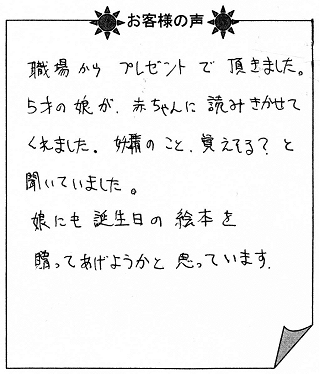 お客様の声
職場から プレゼントで 頂きました。
5才の娘が、赤ちゃんに 読みきかせて
くれました。妖精のこと、覚えてる？と
聞いていました。
娘にも 誕生日の 絵本を
贈ってあげようかと 思っています.